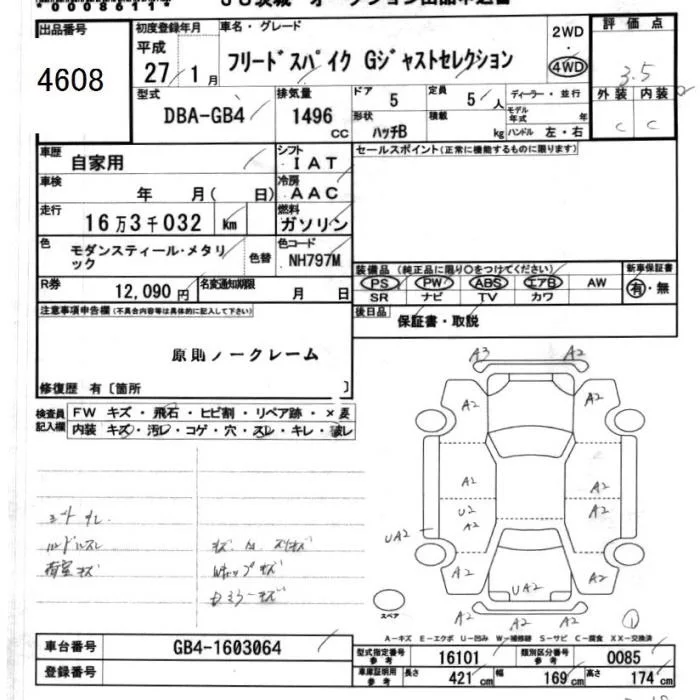 出品番号
4608
初度登録年月
平成
27 / 1月
車名・グレード
フリードスパイク Gジャストセレクション
2WD
・
4WD
評価点
3.5
外装 内装
C C
型式
DBA-GB4
排気量
1496 cc
ドア 5
定員 5人
形状 ハッチB
積載 kg
ディーラー・並行
モデル年式 年
ハンドル 左・右
車歴 自家用
シフト IAT
車検 年 月( 日)
冷房 AAC
走行 16万3千032 km
燃料 ガソリン
色 モダンスティール・メタリック
色替
色コード NH797M
R券 12,090円
名変通知期限 月 日
セールスポイント(正常に機能するものに限ります)
装備品 (純正品に限り○をつけてください)
PS PW ABS エアB AW
SR ナビ TV カワ
新車保証書
有・無
後日品 保証書・取説
注意事項申告欄(不具合内容等は具体的に記入して下さい)
原則ノークレーム
修復歴 有〔箇所 〕
検査員記入欄
FW キズ・飛石・ヒビ割・リペア跡・×要
内装 キズ・汚レ・コゲ・穴・スレ・キレ・破レ
A3 A2
A2 A2
A2 A2
U2 A2 A2
UA2
A2 UA2 A2
A2 A2
スペア
ハンドルスレ
荷室キズ
A-キズ E-エクボ U-凹み W-補修跡 S-サビ C-腐食 XX-交換済
車台番号 GB4-1603064
登録番号
型式指定番号 参考 16101
類別区分番号 参考 0085
車庫証明用 参考
長さ 421cm
幅 169cm
高さ 174cm